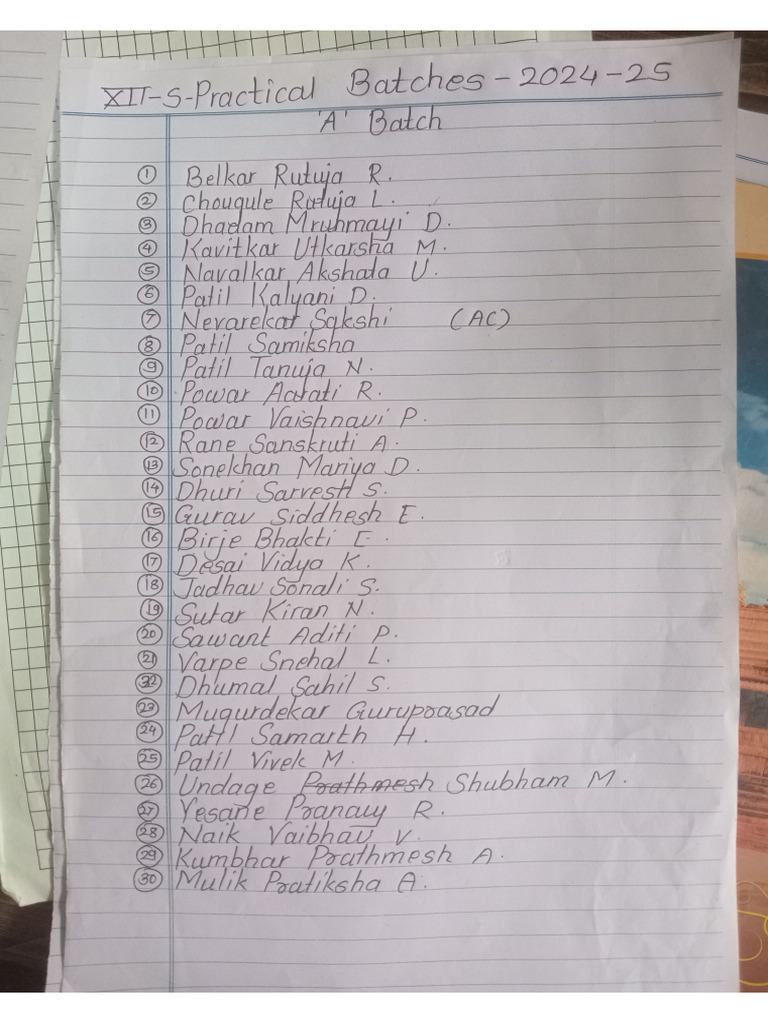 XII-S-Practical Batches-2024-25
'A' Batch
1 Belkar Rutuja R.
2 Chougule Rutuja L.
3 Dhadam Mrunmayi D.
4 Kavitkar Utkarsha M.
5 Navalkar Akshata U.
6 Patil Kalyani D.
7 Nevarekar Sakshi (AC)
8 Patil Samiksha
9 Patil Tanuja N.
10 Powar Aarati R.
11 Powar Vaishnavi P.
12 Rane Sanskruti A.
13 Sonekhan Mariya D.
14 Dhuri Sarvesh S.
15 Gurav Siddhesh E.
16 Birje Bhakti E.
17 Desai Vidya K.
18 Jadhav Sonali S.
19 Sutar Kiran N.
20 Sawant Aditi P.
21 Varpe Snehal L.
22 Dhumal Sahil S.
23 Mugurdekar Guruprasad
24 Patil Samarth H.
25 Patil Vivek M.
26 Undage Prathmesh Shubham M.
27 Yesane Pranav R.
28 Naik Vaibhav V.
29 Kumbhar Prathmesh A.
30 Mulik Pratiksha A.